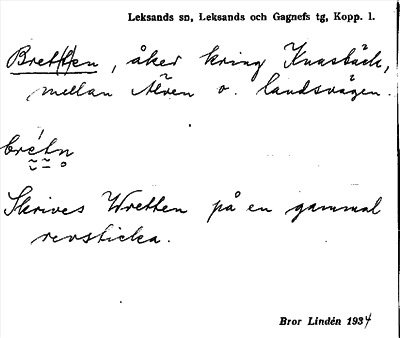 Leksands sn, Leksands och Gagnefs tg, Kopp. l.
Bret(t)en, åker kring Knasbäck,
mellan Älven o. landsvägen.
brétn
Skrives Wretten på en gammal
revsticka.
Bror Lindén 1934